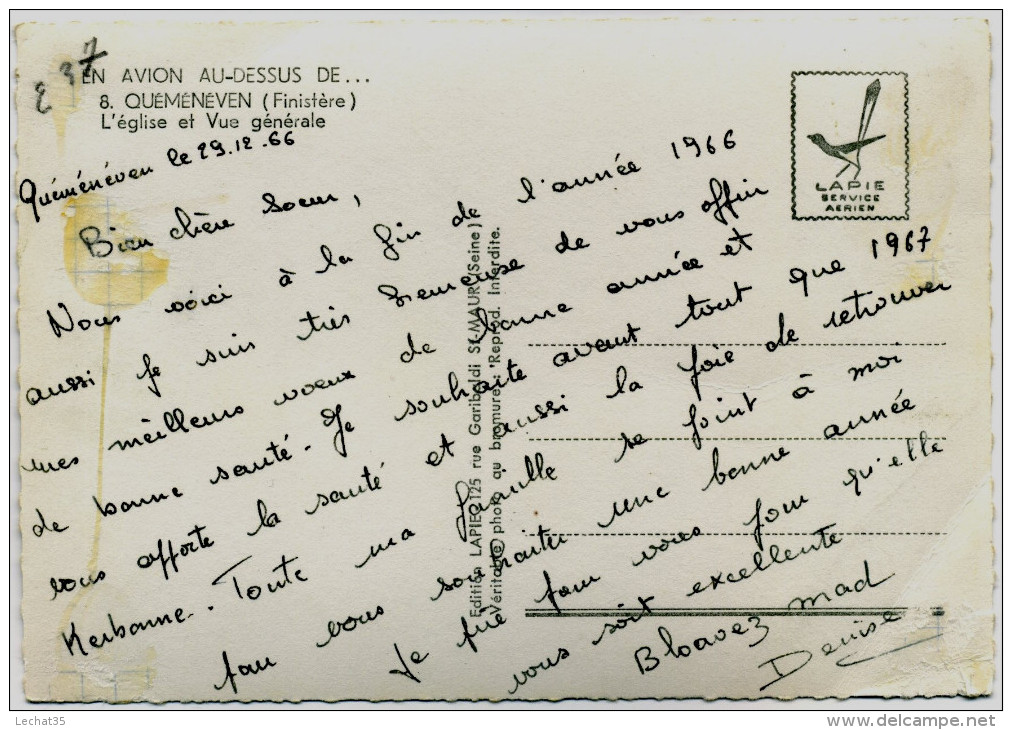 237
EN AVION AU-DESSUS DE...
8. QUÉMÉNÉVEN (Finistère)
L'église et Vue générale
LAPIE
SERVICE
AERIEN
Quéménéven le 29.12.66
Bien chère Soeur,
Nous voici à la fin de l'année 1966
aussi je suis très heureuse de vous offrir
mes meilleurs voeux de bonne année et
de bonne santé. Je souhaite avant tout que 1967
vous apporte la santé et aussi la joie de retrouver
Kerbonne. Toute ma famille se joint à moi
pour vous souhaiter une bonne année
Je prie pour vous pour qu'elle
vous soit excellente
Bloavez mad
Denise
Edition LAPIE, 125 rue Garibaldi St-MAUR (Seine)
Véritable photo au bromure. Reprod. Interdite.
Lechat35
www.delcampe.net